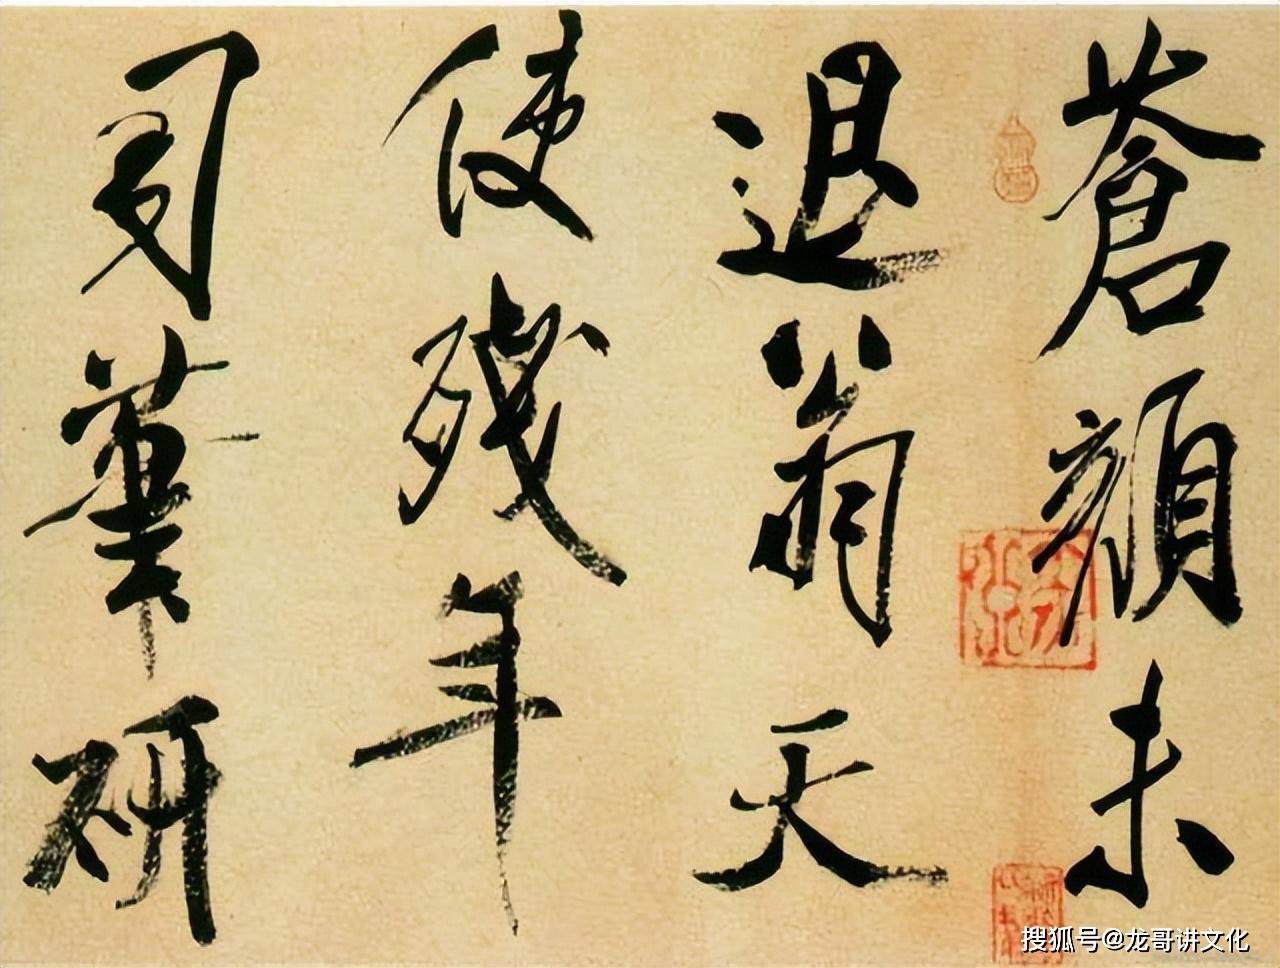 蒼顏未
退翁天
使殘年
司筆研
搜狐号@龙哥讲文化